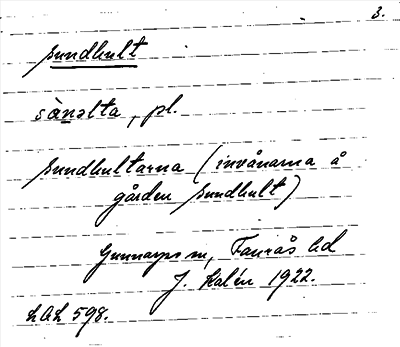 3.
sundhult
sànəlta, pl.
sundhultarna (invånarna å
gården sundhult)
Gunnarps sn, Faurås hd
J. Kalén 1922.
LAL 598.